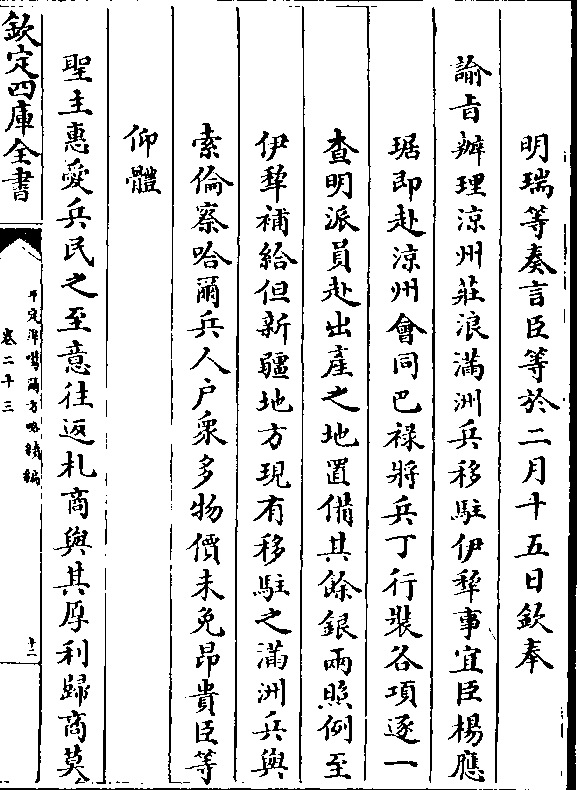 明瑞等奏言臣等於二月十五日欽奉
諭㫖辦理涼州莊浪滿洲兵移駐伊犂事宜臣楊應
琚即赴涼州會同巴祿將兵丁行裝各項逐一
查明派員赴出產之地置備其餘銀兩照例至
伊犂補給但新疆地方現有移駐之滿洲兵與
索倫察哈爾兵人户衆多物價未免昂貴臣等
仰體
聖主惠愛兵民之至意往返札商與其厚利歸商莫
欽定四庫全書
平定準噶爾方略續編
卷二十三
十二